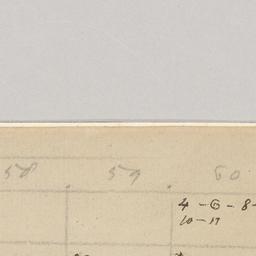 58 . 59 . 60
4 - 6 - 8 -
10 - 17